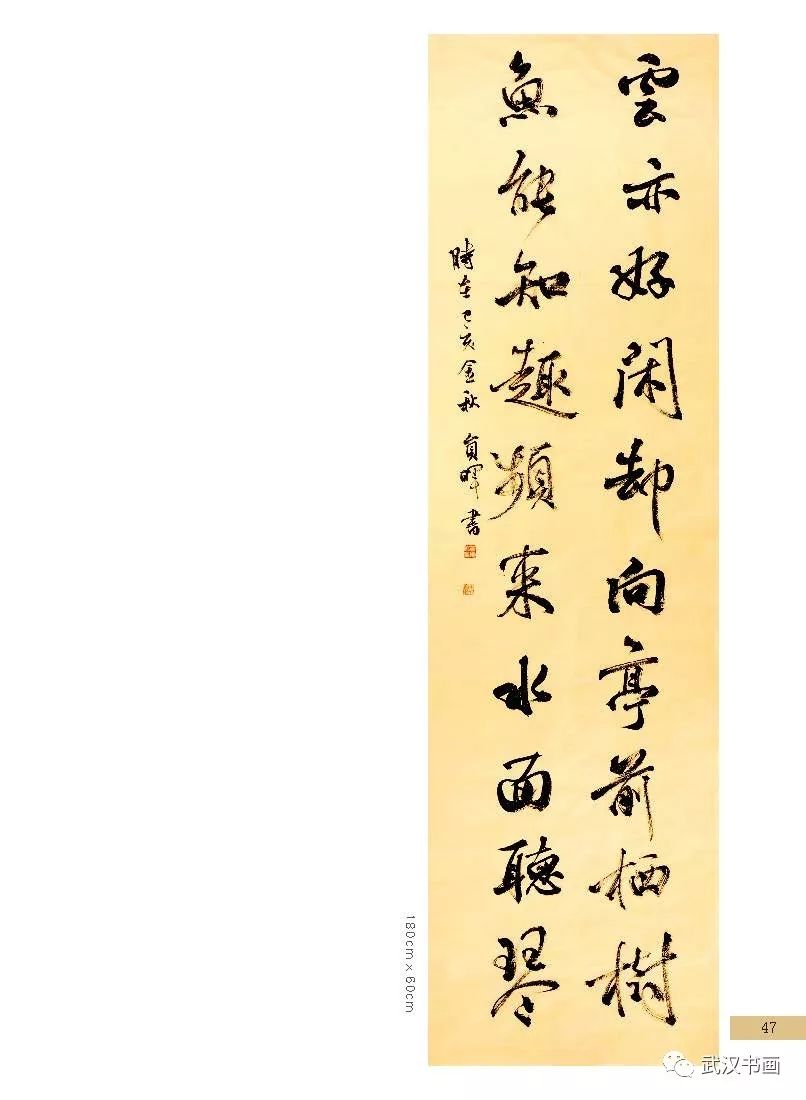 雲亦好閑却向亭前栖樹
魚能知趣頻来水面聽琴
時在己亥金秋 貟暉書
180cm x 60cm
47
武汉书画